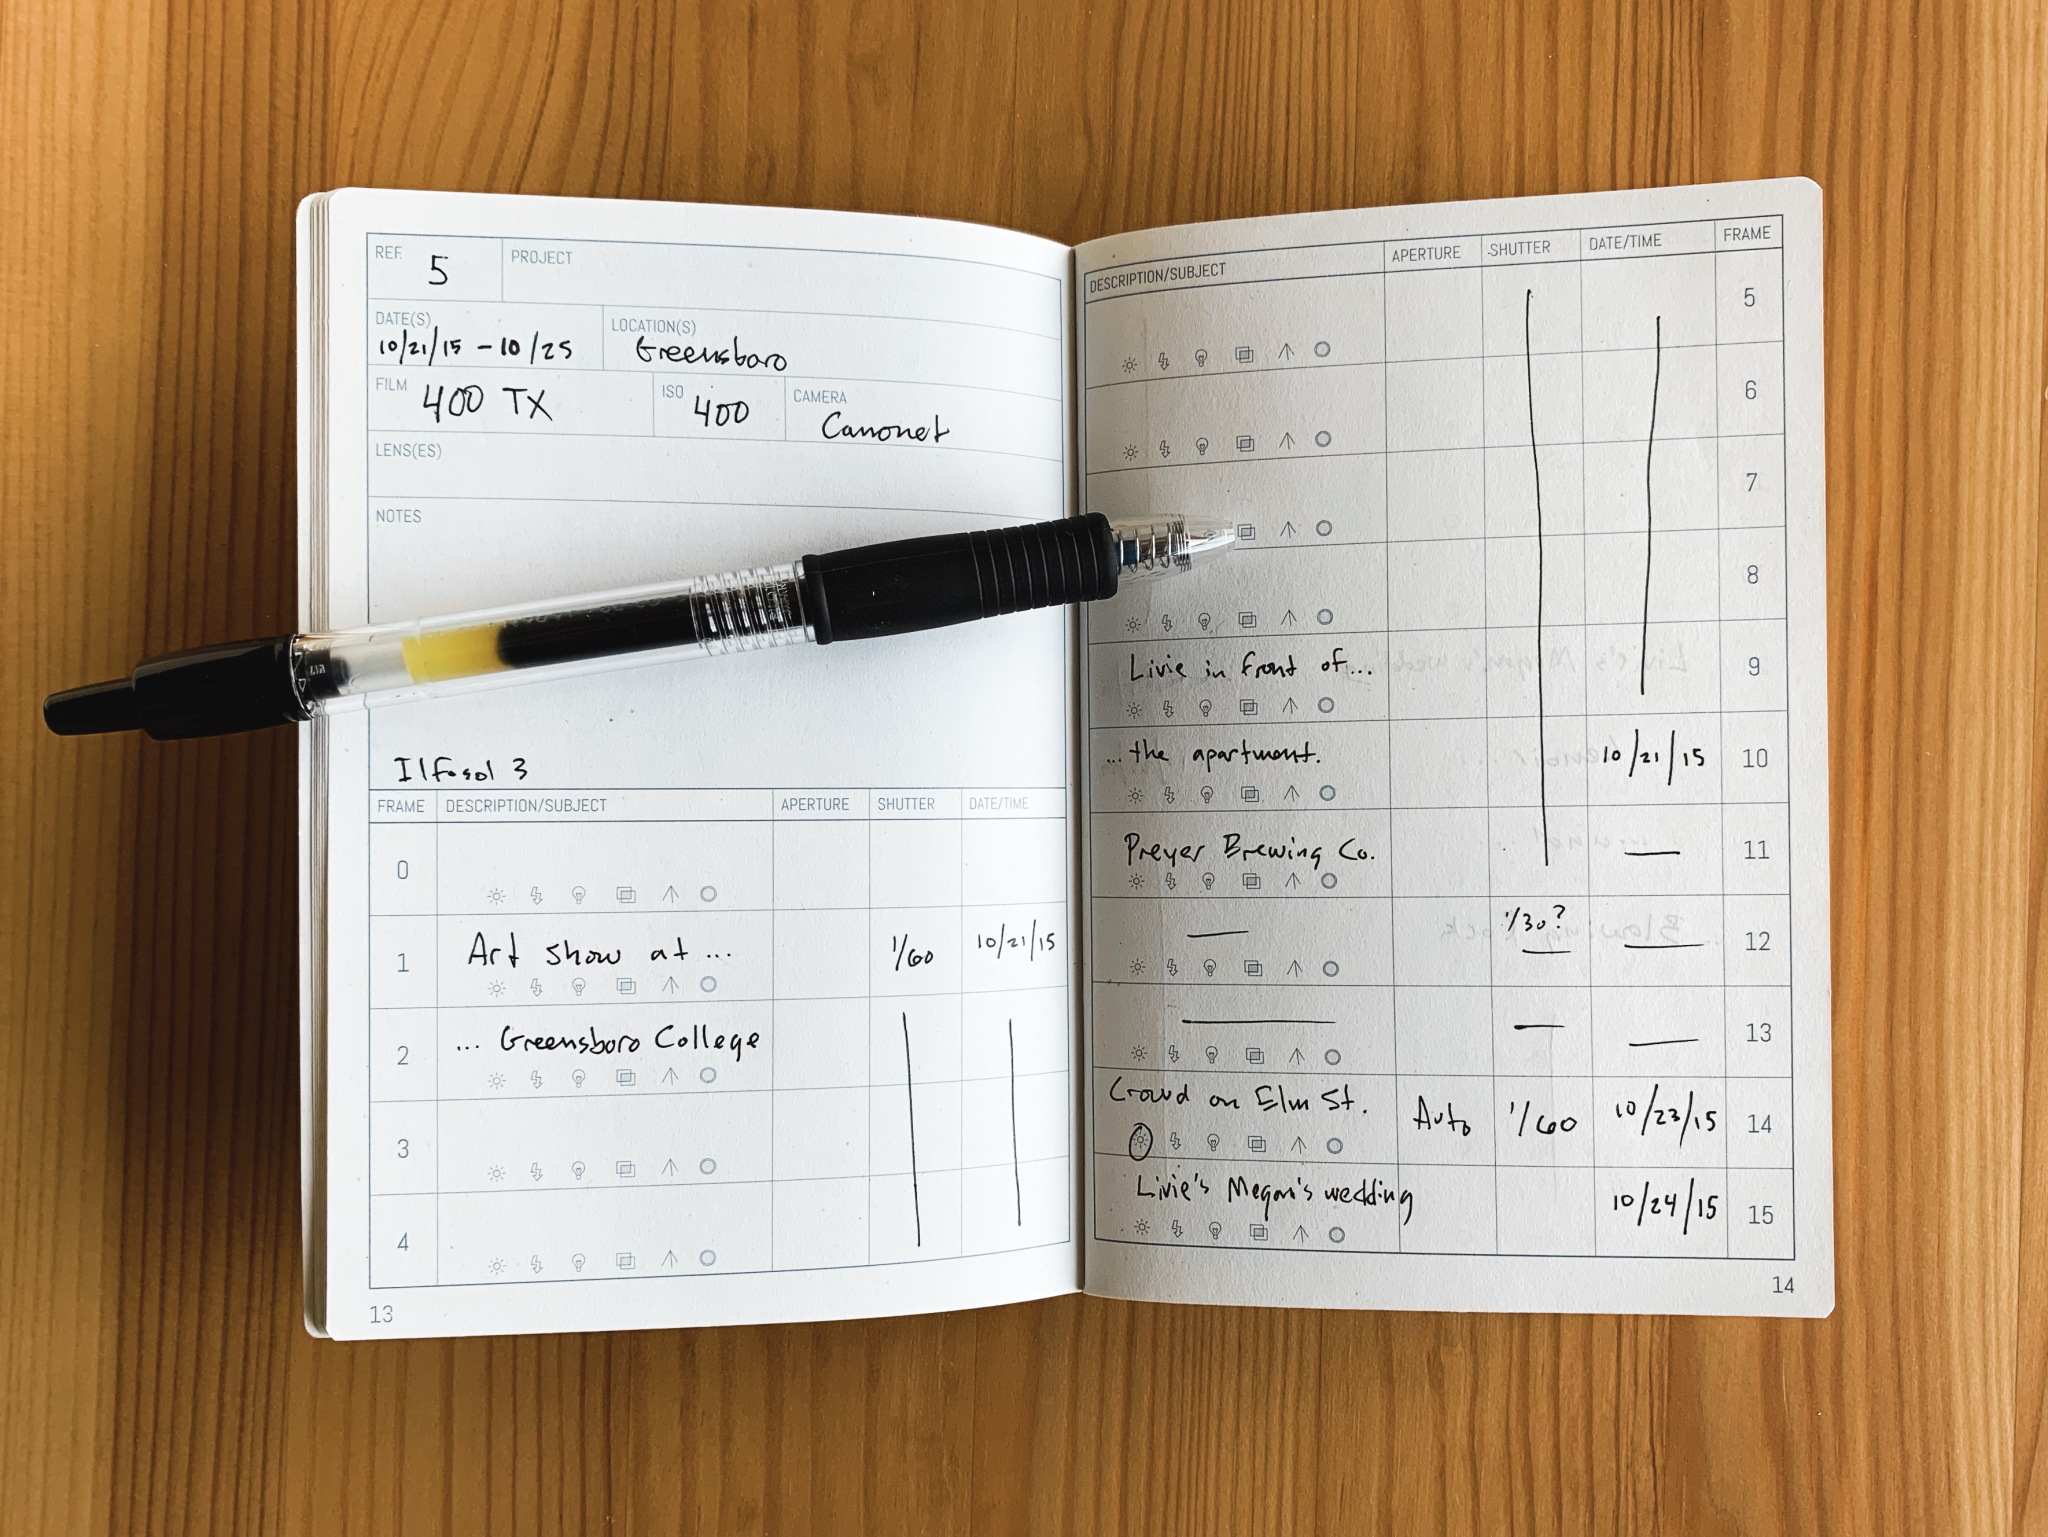 REF. 5 PROJECT
DATE(S) LOCATION(S)
10/21/15 - 10/25 Greensboro
FILM 400 TX ISO 400 CAMERA Canonet
LENS(ES)
NOTES
Ilfosol 3
FRAME DESCRIPTION/SUBJECT APERTURE SHUTTER DATE/TIME
0
1 Art show at ... 1/60 10/21/15
2 ... Greensboro College
3
4
13
DESCRIPTION/SUBJECT APERTURE SHUTTER DATE/TIME FRAME
5
6
7
8
Livie in front of... 9
... the apartment. 10/21/15 10
Preyer Brewing Co. 11
1/30? 12
13
Crowd on Elm St. Auto 1/60 10/23/15 14
Livie's Megan's wedding 10/24/15 15
14